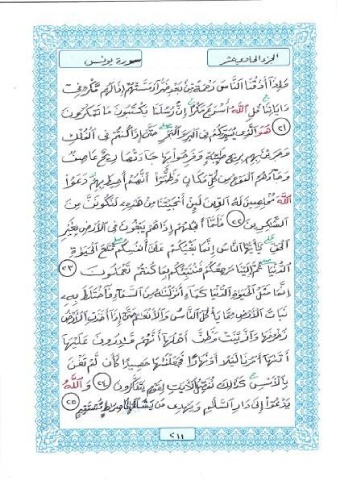 الجزء الحادى عشر
سورة يونس
وإذا أذقنا الناس رحمة من بعد ضراء مستهم إذا لهم مكر فى
ءاياتنا قل الله أسرع مكرا إن رسلنا يكتبون ما تمكرون
٢١ هو الذى يسيركم فى البر والبحر حتى إذا كنتم فى الفلك
وجرين بهم بريح طيبة وفرحوا بها جاءتها ريح عاصف
وجاءهم الموج من كل مكان وظنوا أنهم أحيط بهم دعوا
الله مخلصين له الدين لئن أنجيتنا من هذه لنكونن من
الشكرين ٢٢ فلما أنجاهم إذا هم يبغون فى الأرض بغير
الحق يأيها الناس إنما بغيكم على أنفسكم متاع الحيوة
الدنيا ثم إلينا مرجعكم فننبئكم بما كنتم تعملون ٢٣
إنما مثل الحيوة الدنيا كماء أنزلناه من السماء فاختلط به
نبات الأرض مما يأكل الناس والأنعام حتى إذا أخذت الأرض
زخرفها وازينت وظن أهلها أنهم قادرون عليها
أتاها أمرنا ليلا أو نهارا فجعلناها حصيدا كأن لم تغن
بالأمس كذلك نفصل الأيات لقوم يتفكرون ٢٤ والله
يدعوا إلى دار السلام ويهدى من يشاء إلى صراط مستقيم ٢٥
٢١١